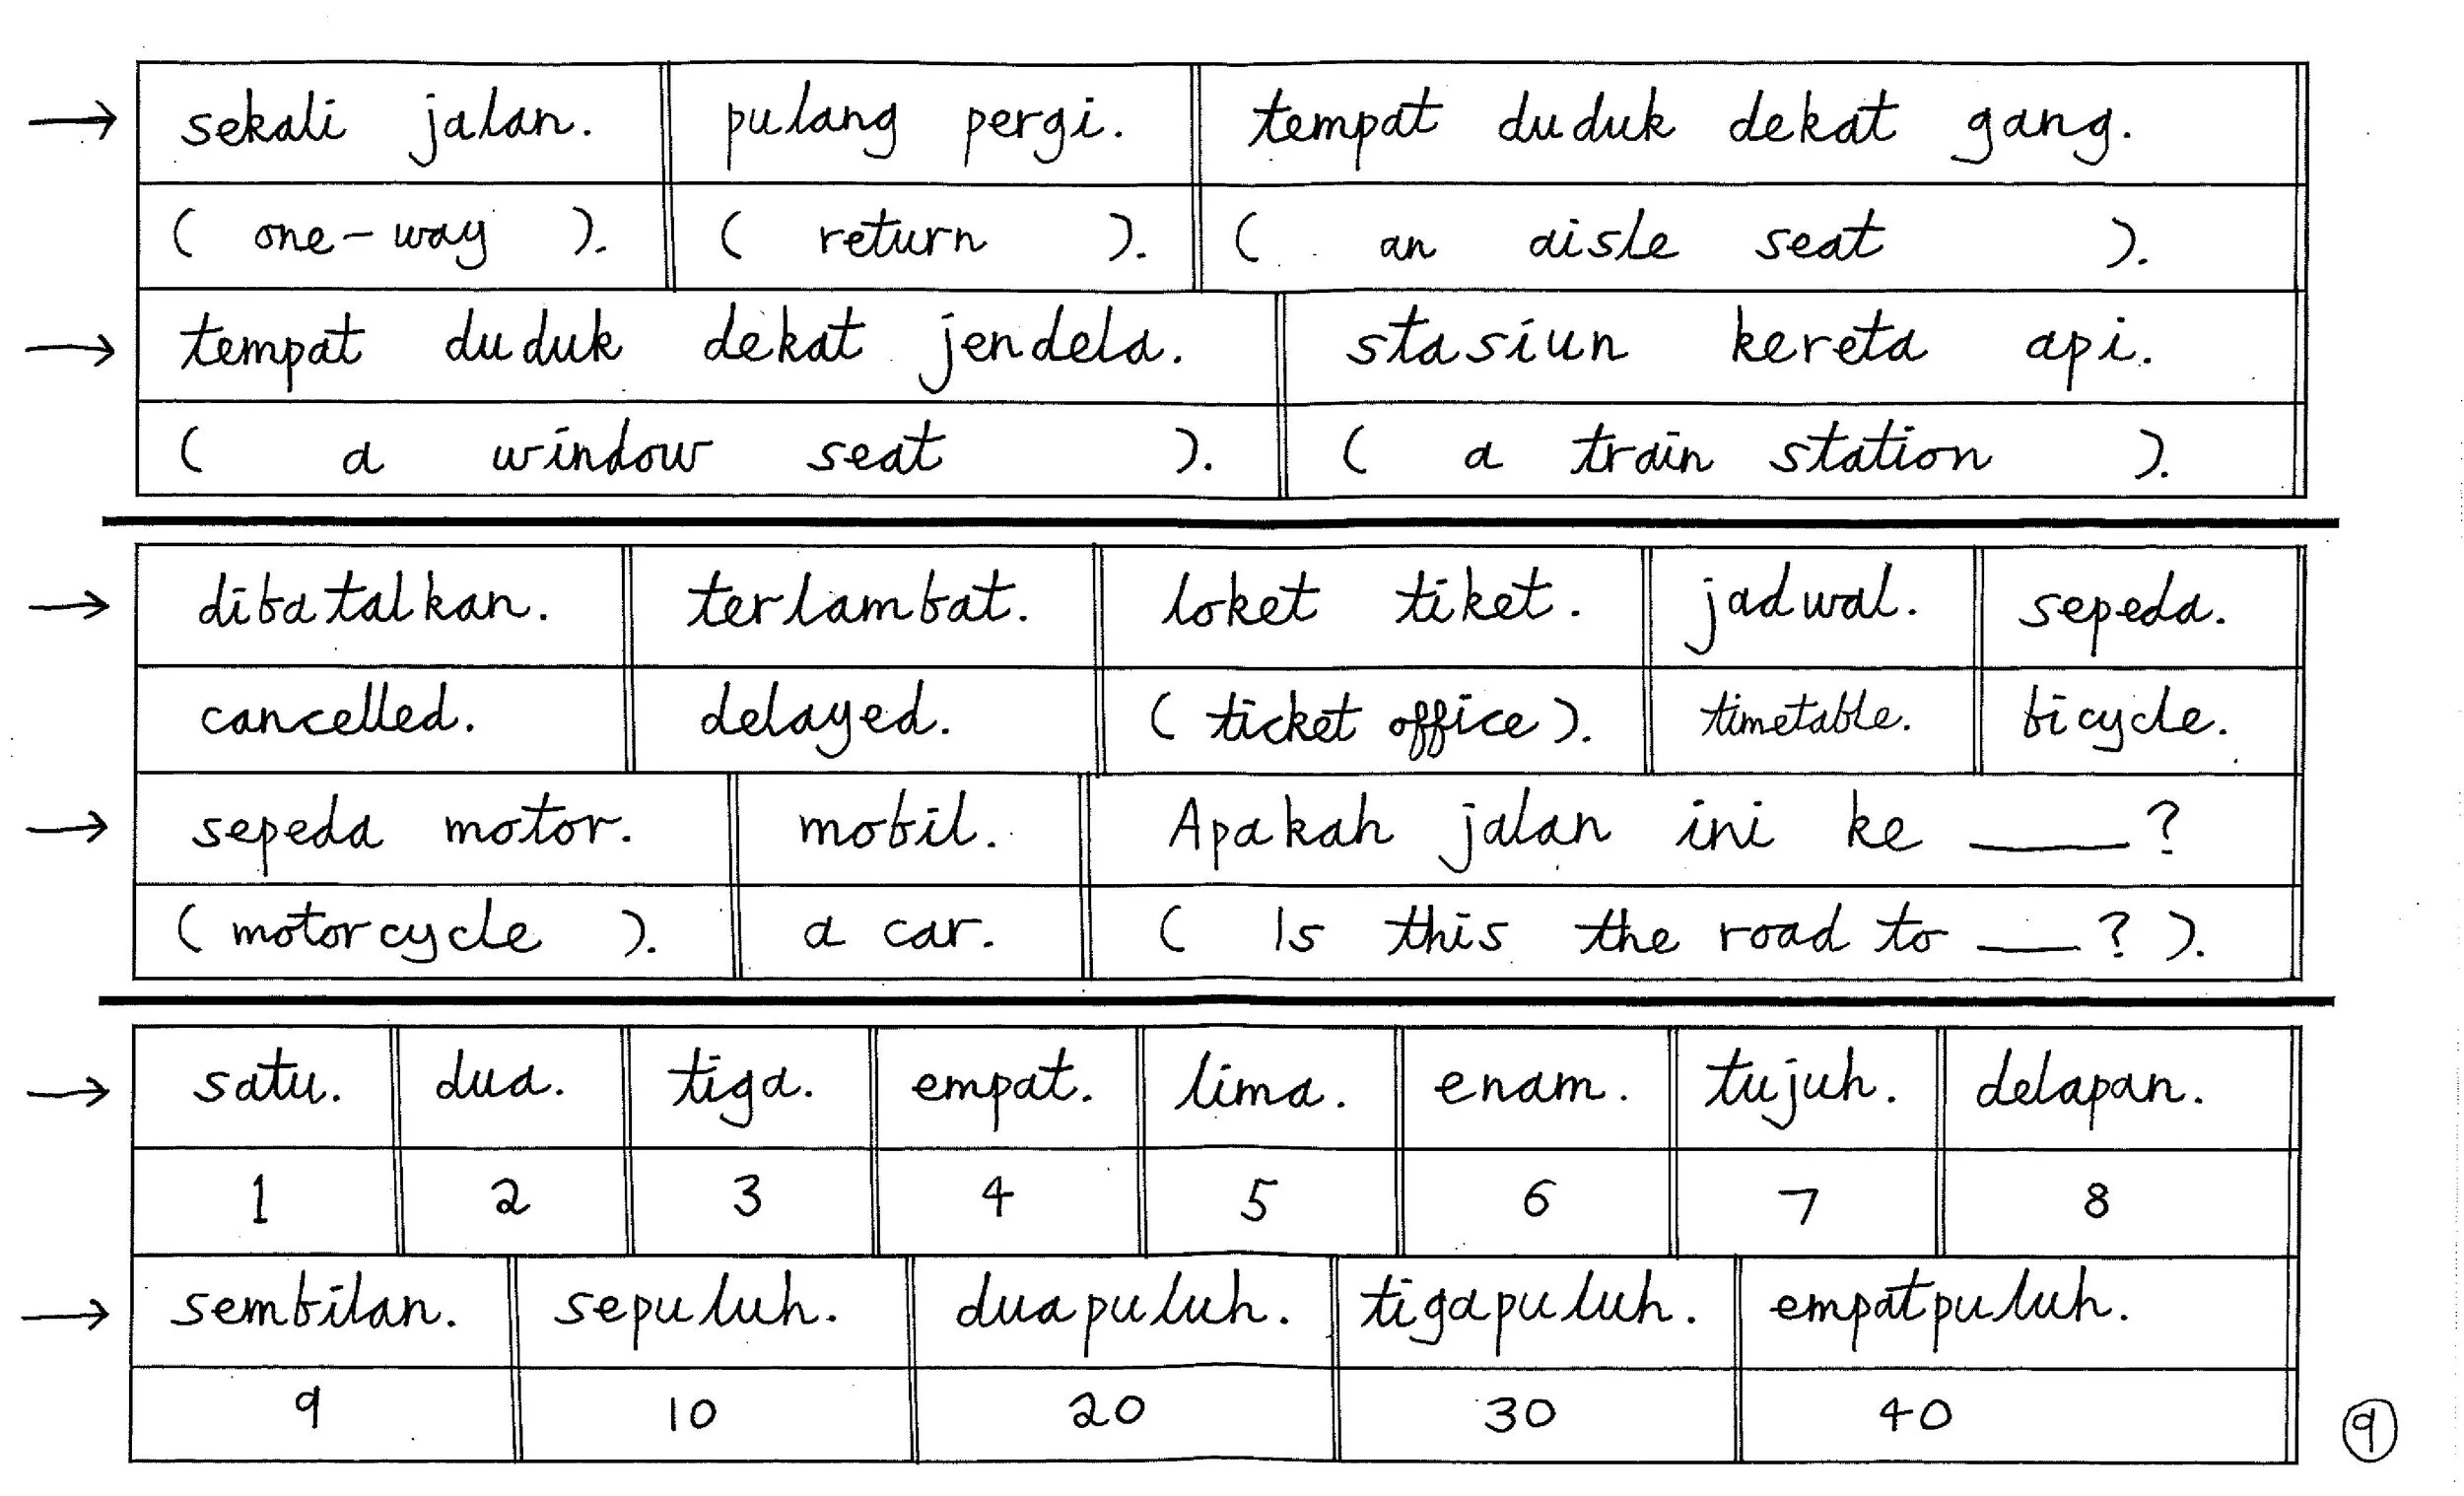 → sekali jalan. pulang pergi. tempat duduk dekat gang.
( one-way ). ( return ). ( an aisle seat ).
→ tempat duduk dekat jendela. stasiun kereta api.
( a window seat ). ( a train station ).
→ dibatalkan. terlambat. loket tiket. jadwal. sepeda.
cancelled. delayed. ( ticket office ). timetable. bicycle.
→ sepeda motor. mobil. Apakah jalan ini ke ____?
( motorcycle ). a car. ( Is this the road to ___? ).
→ satu. dua. tiga. empat. lima. enam. tujuh. delapan.
1 2 3 4 5 6 7 8
→ sembilan. sepuluh. duapuluh. tigapuluh. empatpuluh.
9 10 20 30 40
9